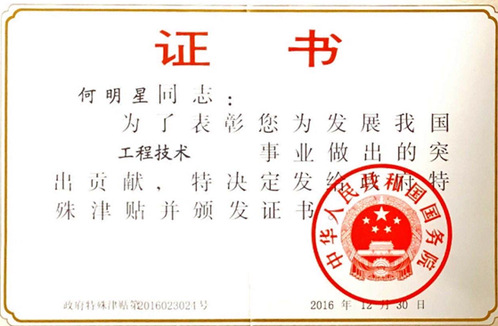 证 书
何明星同志：
为了表彰您为发展我国
工程技术 事业做出的突
出贡献，特决定发给政府特
殊津贴并颁发证书
中华人民共和国国务院
政府特殊津贴第2016023024号
2016 年 12 月 30 日